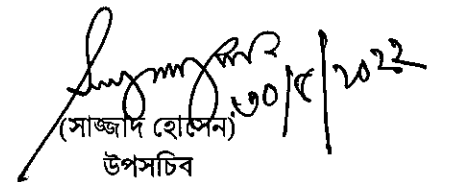 ৩০/৫/২০২২
(সাজ্জাদ হোসেন)
উপসচিব